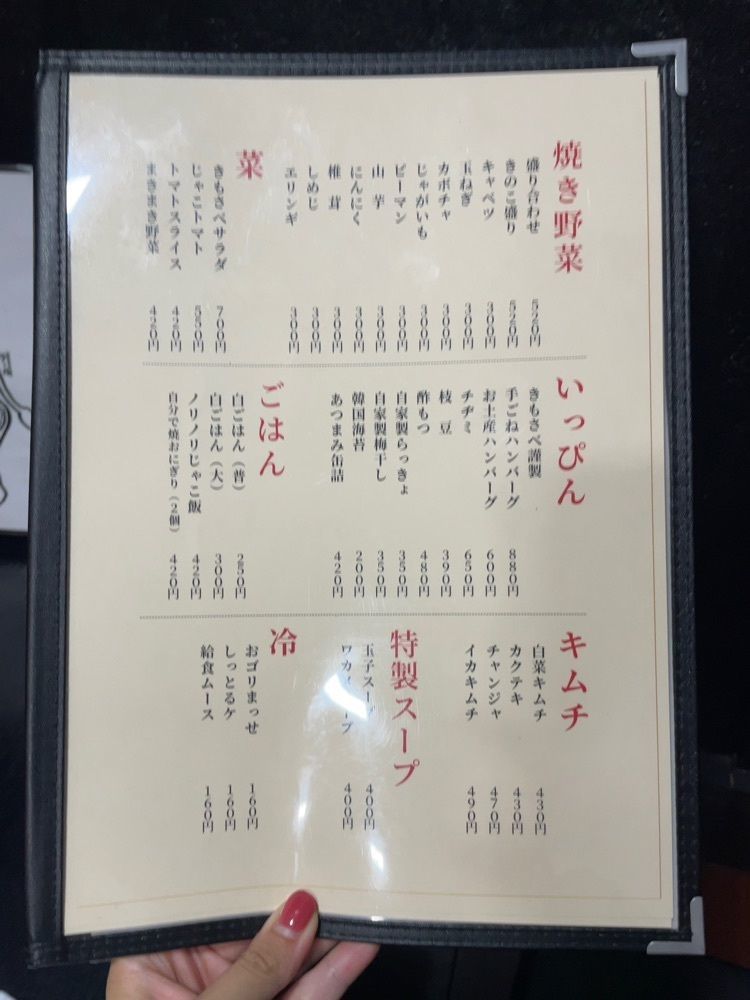 焼き野菜
盛り合わせ 520円
きのこ盛り 520円
キャベツ 300円
玉ねぎ 300円
カボチャ 300円
じゃがいも 300円
ピーマン 300円
山芋 300円
にんにく 300円
椎茸 300円
しめじ 300円
エリンギ 300円
菜
きもさべサラダ 700円
じゃこトマト 550円
トマトスライス 420円
まきまき野菜 420円
いっぴん
きもさべ謹製
手ごねハンバーグ 880円
お土産ハンバーグ 600円
チヂミ 650円
枝豆 390円
酢もつ 480円
自家製らっきょ 350円
自家製梅干し 350円
韓国海苔 200円
あつまみ缶詰 420円
ごはん
白ごはん(普) 250円
白ごはん(大) 300円
ノリノリじゃこ飯 420円
自分で焼おにぎり(2個) 420円
キムチ
白菜キムチ 430円
カクテキ 430円
チャンジャ 470円
イカキムチ 490円
特製スープ
玉子スープ 400円
400円
冷
おゴリまっせ 160円
しっとるケ 160円
給食ムース 160円